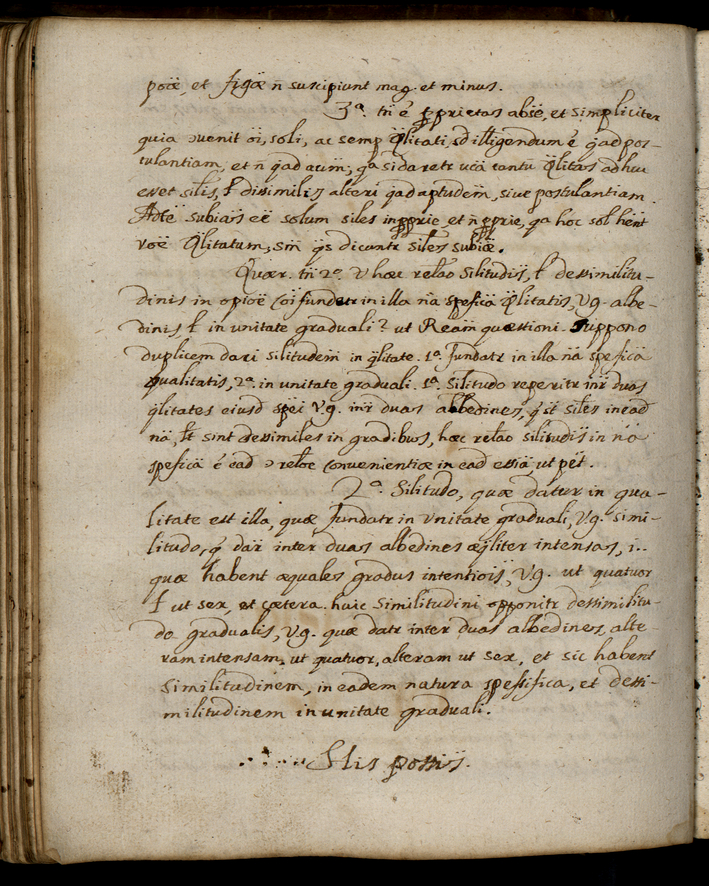 poïë, et figæ ñ suscipiunt mag. et minus.
3ª. tñ é proprietas absë, et simpliciter
quia ɔvenit oï, soli, ac semp qlitati, sd illigendum é qad pos-
tulantiam, et ñ qad acum, qa si daretr uca tantu qlitas ad huc
esset silis, ł dissimilis alteri qad aptudem, siue postulantiam.
Adte subias eë solum siles inpprie, et ñ pprie, qa hoc sol hent
roë qlitatum, sm qs dicuntr siles subiæ.
Quær. tñ 2º. V hæc relao Silitudis, ł dessimilitu-
dinis in opioë Coi fundetr in illa ña spefica qlitatis, V.g. albe-
dinis, ł in unitate graduali? ut Ream quæstioni. Suppono
duplicem dari silitudem in qlitate. 1ª. fundatr in illa ña spefica
qualitatis, 2ª. in unitate graduali. 1ª. Silitudo reperitr intr duas
qlitates eiusd spei, V.g. intr duas albedines, q st siles in ead
ña, lt sint dessimiles in gradibus, hæc relao silitudis in ña
spefica é ead ɔ reloe convenientiæ in ead essia ut pet.
2ª. Silitudo, quæ datur in qua-
litate est illa, quæ fundatr in vnitate graduali, V.g. simi-
litudo, q datr inter duas albedines æqliter intensas, i..
quæ habent æquales gradus intentiois, V.g. ut quatuor
ł ut sex, et cætera. huic similitudini opponitr dessimilitu-
do gradualis, V.g. quæ datr inter duas albedines, alte
ram intensam, ut quatuor, alteram ut sex, et sic habent
similitudinem, in eadem natura spessifica, et dessi-
militudinem in unitate graduali.
His possis.